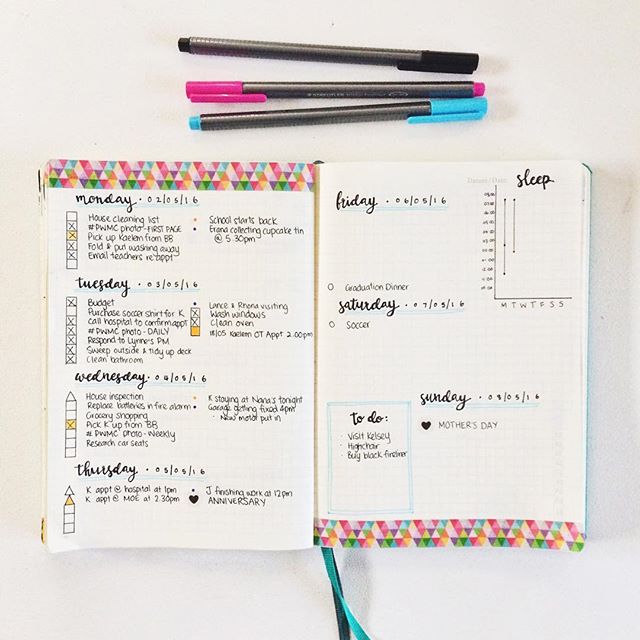 monday · 02/05/16
House cleaning list
#DWMC photo - FIRST PAGE
Pick up Kaelem from BB
Fold & put washing away
Email teachers re: appt
School starts back
Erana collecting cupcake tin
@ 5.30pm
tuesday · 03/05/16
Budget
Purchase soccer shirt for K
Call hospital to confirm appt
#DWMC photo - DAILY
Respond to Lynne's PM
Sweep outside & tidy up deck
Clean bathroom
Lance & Rhona visiting
Wash windows
Clean oven
18/05 Kaelem OT Appt 2.00pm
wednesday · 04/05/16
House inspection
Replace batteries in fire alarm
Grocery shopping
Pick K up from BB
#DWMC photo - Weekly
Research car seats
K staying at Nana's tonight
Garage getting fixed 4pm
- New motor put in
thursday · 05/05/16
K appt @ hospital at 1pm
K appt @ MOE at 2.30pm
J finishing work at 12pm
ANNIVERSARY
friday · 06/05/16
Graduation Dinner
saturday · 07/05/16
Soccer
to do:
· Visit Kelsey
· Highchair
· Buy black fineliner
Datum/Date:
sleep
M T W T F S S
sunday · 08/05/16
MOTHER'S DAY